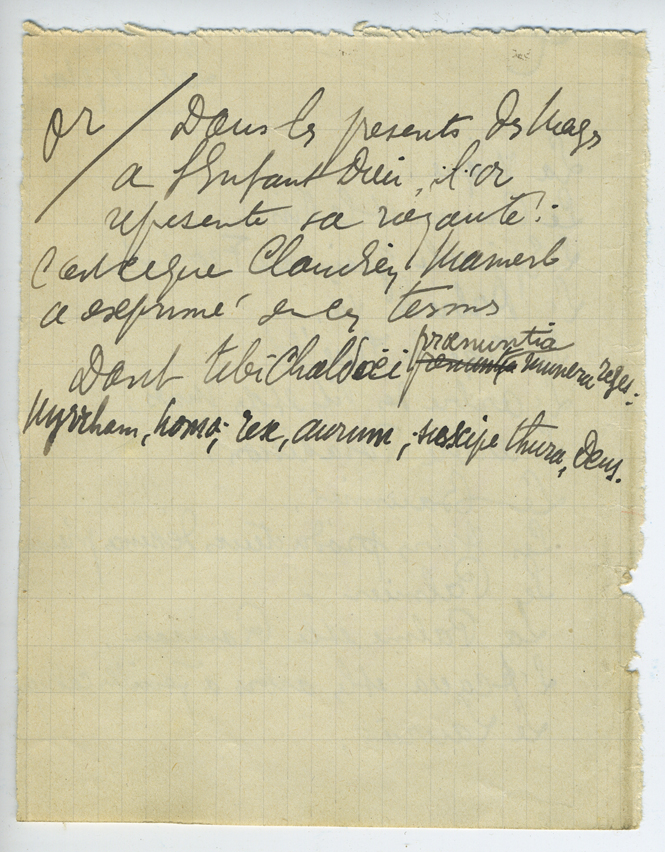 or / Dans les presents des Mages
a l'Enfant Dieu, l'or
represente sa royauté :
c'est ce que Claudien Mamert
a exprimé en ces termes
Dant tibi Chaldœi prœnuntia munera reges :
Myrrham, homo ; rex, aurum ; suscipe thura, Deus.